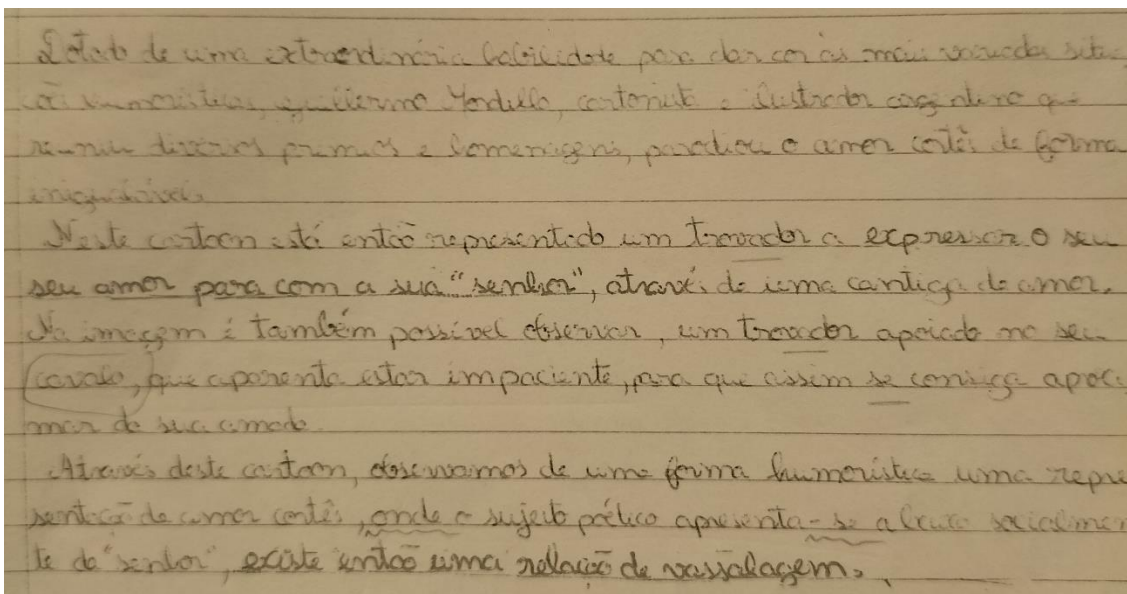 Dotado de uma extraordinária habilidade para dar cor às mais variadas situa
ções humorísticas, guillermo Mordillo, cartonista e ilustrador argentino que
reuniu diversos prémios e homenagens, parodiou o amor cortês de forma
inigualável.
Neste cartoon está então representado um trovador a expressar o seu
seu amor para com a sua "senhor", através de uma cantiga de amor.
Na imagem é também possível observar, um trovador apoiado no seu
cavalo, que aparenta estar impaciente, para que assim se consiga aproxi
mar da sua amada.
Através deste cartoon, observamos de uma forma humorística uma repre
sentação do amor cortês, onde o sujeito poético apresenta-se abaixo socialmen
te da "senhor", existe então uma relação de vassalagem.